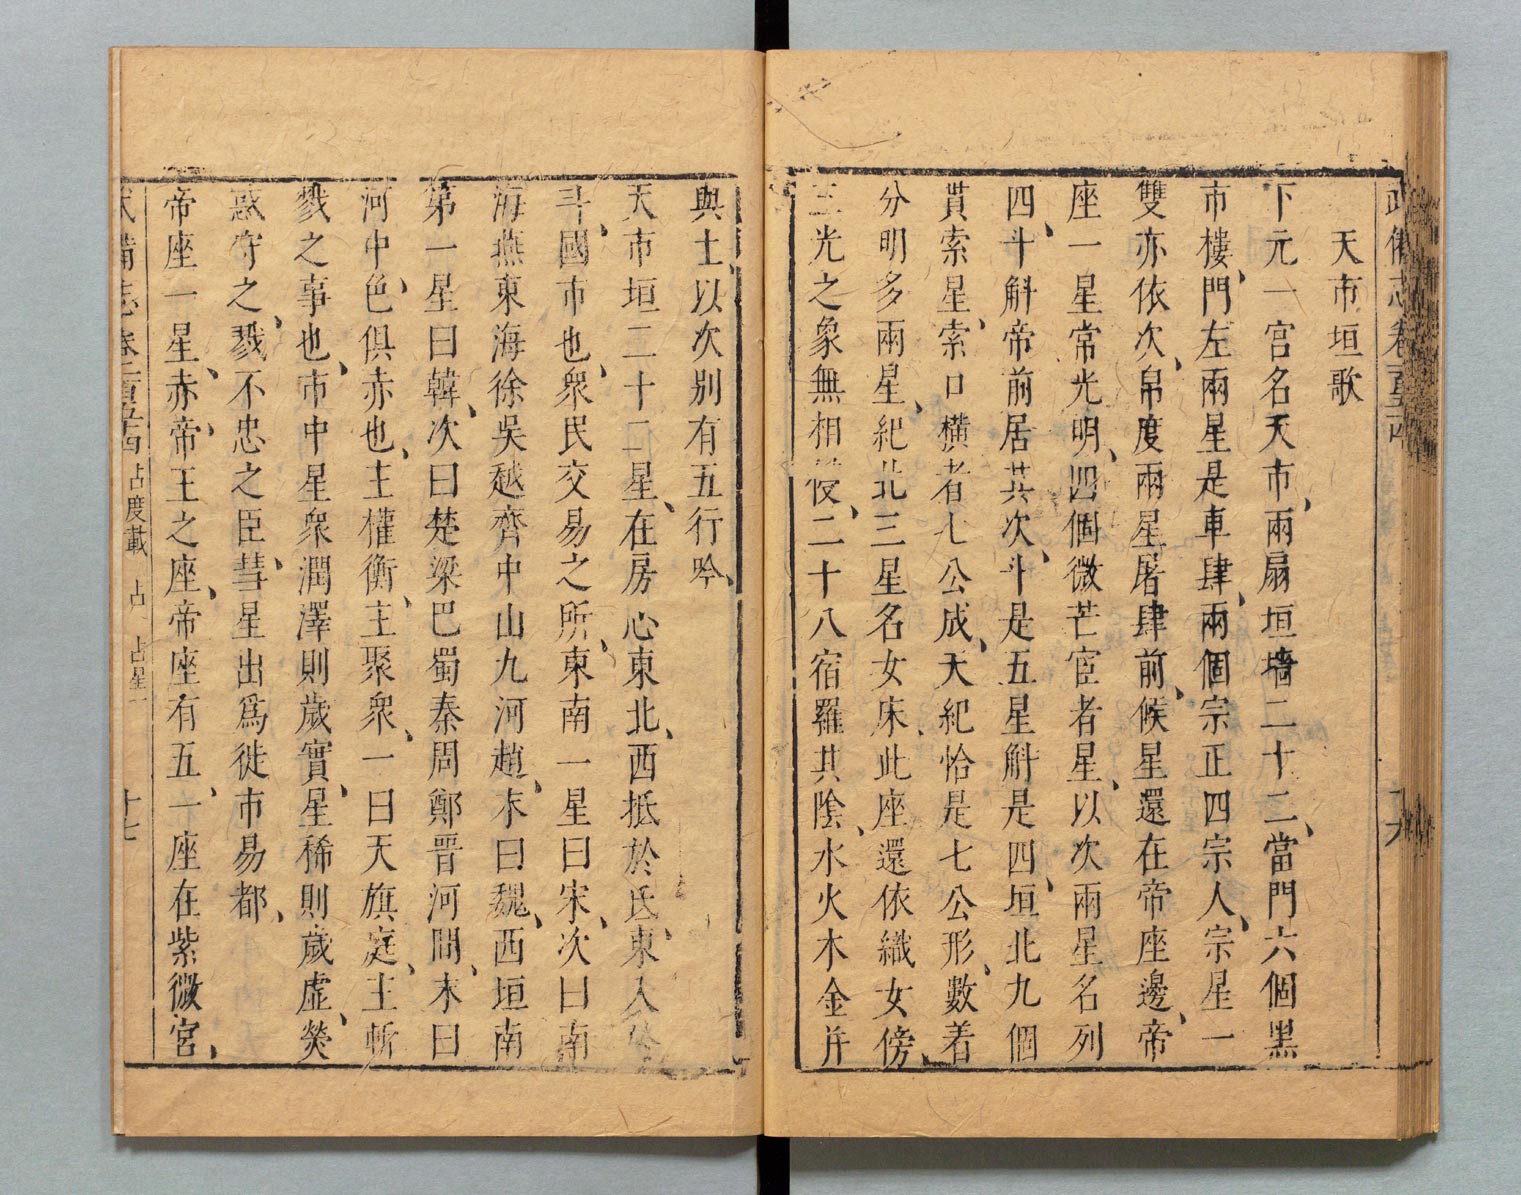 武備志卷一百五十四
天市垣歌
下元一宮名天市、兩扇垣墻二十二、當門六個黑
市樓、門左兩星是車肆、兩個宗正四宗人、宗星一
雙亦依次、帛度兩星屠肆前、候星還在帝座邊、帝
座一星常光明、四個微芒宦者星、以次兩星名列
四、斗斛帝前居其次、斗是五星斛是四、垣北九個
貫索星、索口橫者七公成、天紀恰是七公形、數着
分明多兩星、紀北三星名女床、此座還依織女傍、
三光之象無相侵、二十八宿羅其陰、水火木金并
與土、以次別有五行吟、
天市垣二十二星、在房心東北、西抵於氐、東入
斗、國市也、衆民交易之所、東南一星曰宋、次曰南
海燕東海徐吳越齊中山九河趙、末曰魏、西垣南
第一星曰韓、次曰楚梁巴蜀秦周鄭晉河間、末曰
河中、色俱赤也、主權衡、主聚衆、一曰天旗庭、主斬
戮之事也、市中星衆潤澤則歲實、星稀則歲虛、熒
惑守之、戮不忠之臣、彗星出爲徙市易都、
帝座一星、赤、帝王之座、帝座有五、一座在紫微宮、
武備志卷一百五十四 占度載 占 占星 十七